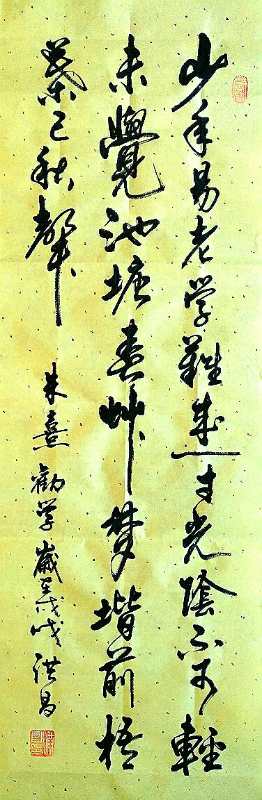 少年易老学難成一寸光陰不可輕
未覺池塘春艸夢堦前梧
葉已秋聲 朱熹勸学歲在戊戌洪昌